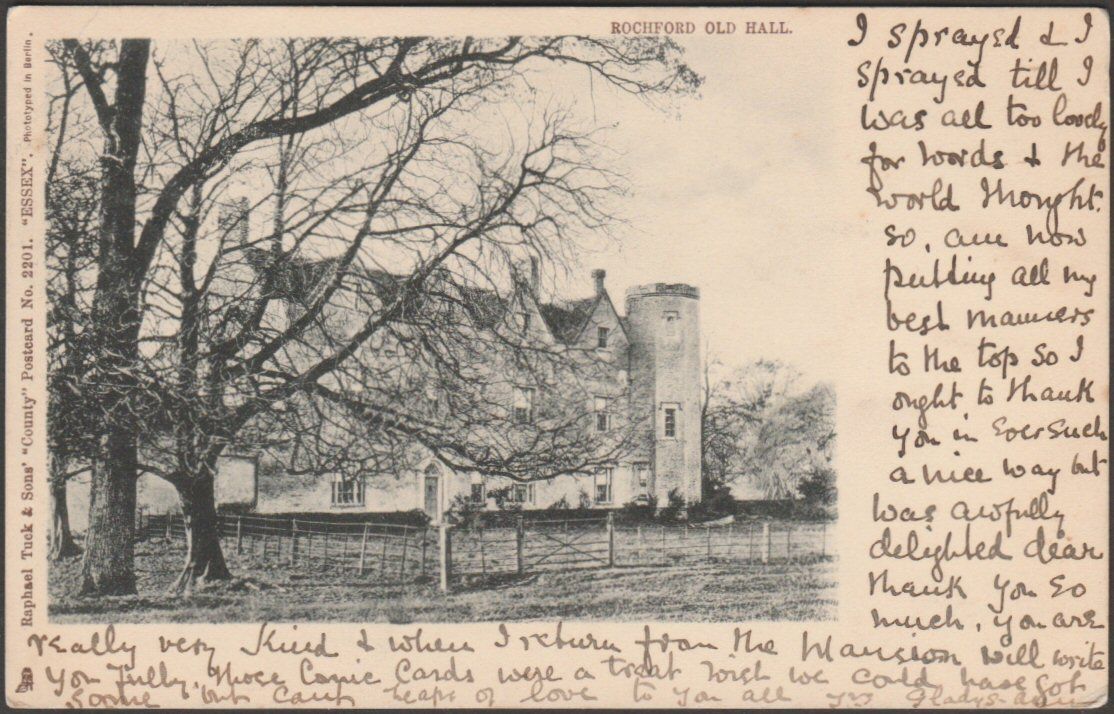 ROCHFORD OLD HALL.
Raphael Tuck & Sons' "County" Postcard No. 2201. "ESSEX". Phototyped in Berlin.
I sprayed & I
sprayed till I
was all too lovely
for words & the
world thought.
So, am now
putting all my
best manners
to the top so I
ought to thank
you in Ever such
a nice way but
was awfully
delighted dear
thank you so
much, you are
really very kind & when I return from the Mansion will write
you fully, those Comic Cards were a treat wish we could have got
some but cant heaps of love to you all Gladys